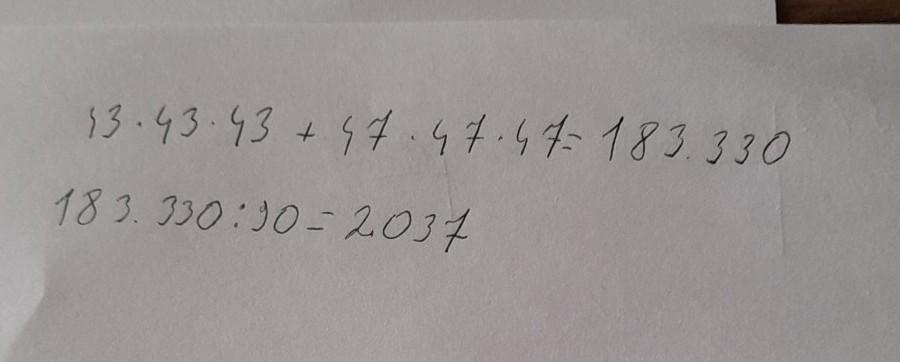 43·43·43 + 47·47·47= 183.330
183.330:90= 2037